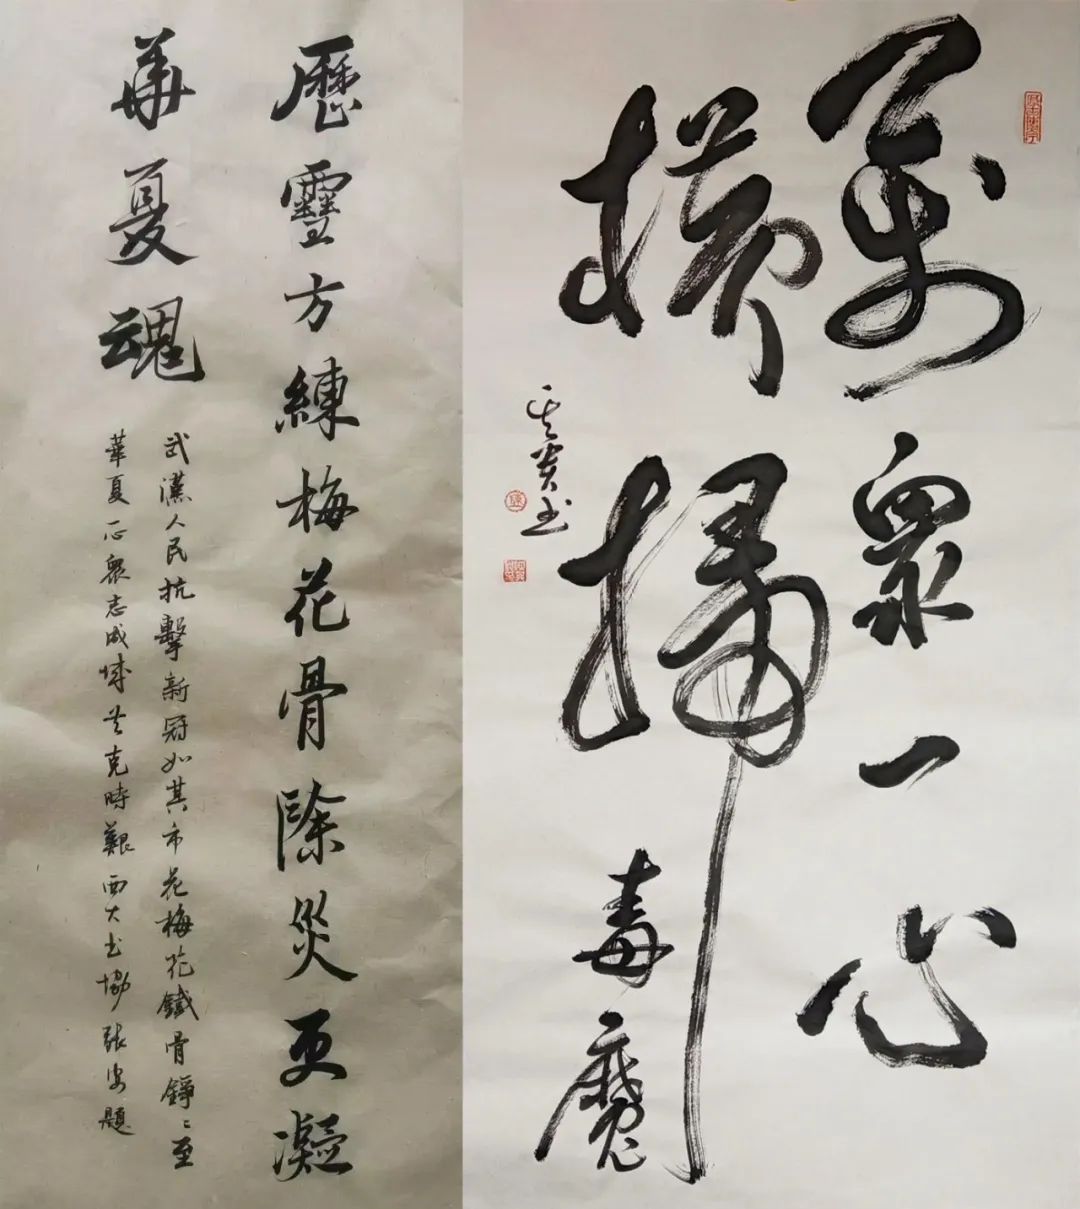 歷雪方練梅花骨除災更凝
華夏魂
武漢人民抗擊新冠如其市花梅花鐵骨錚〻至
華夏一心衆志成城共克時艱西大书協張安題
萬眾一心
橫掃毒魔
书